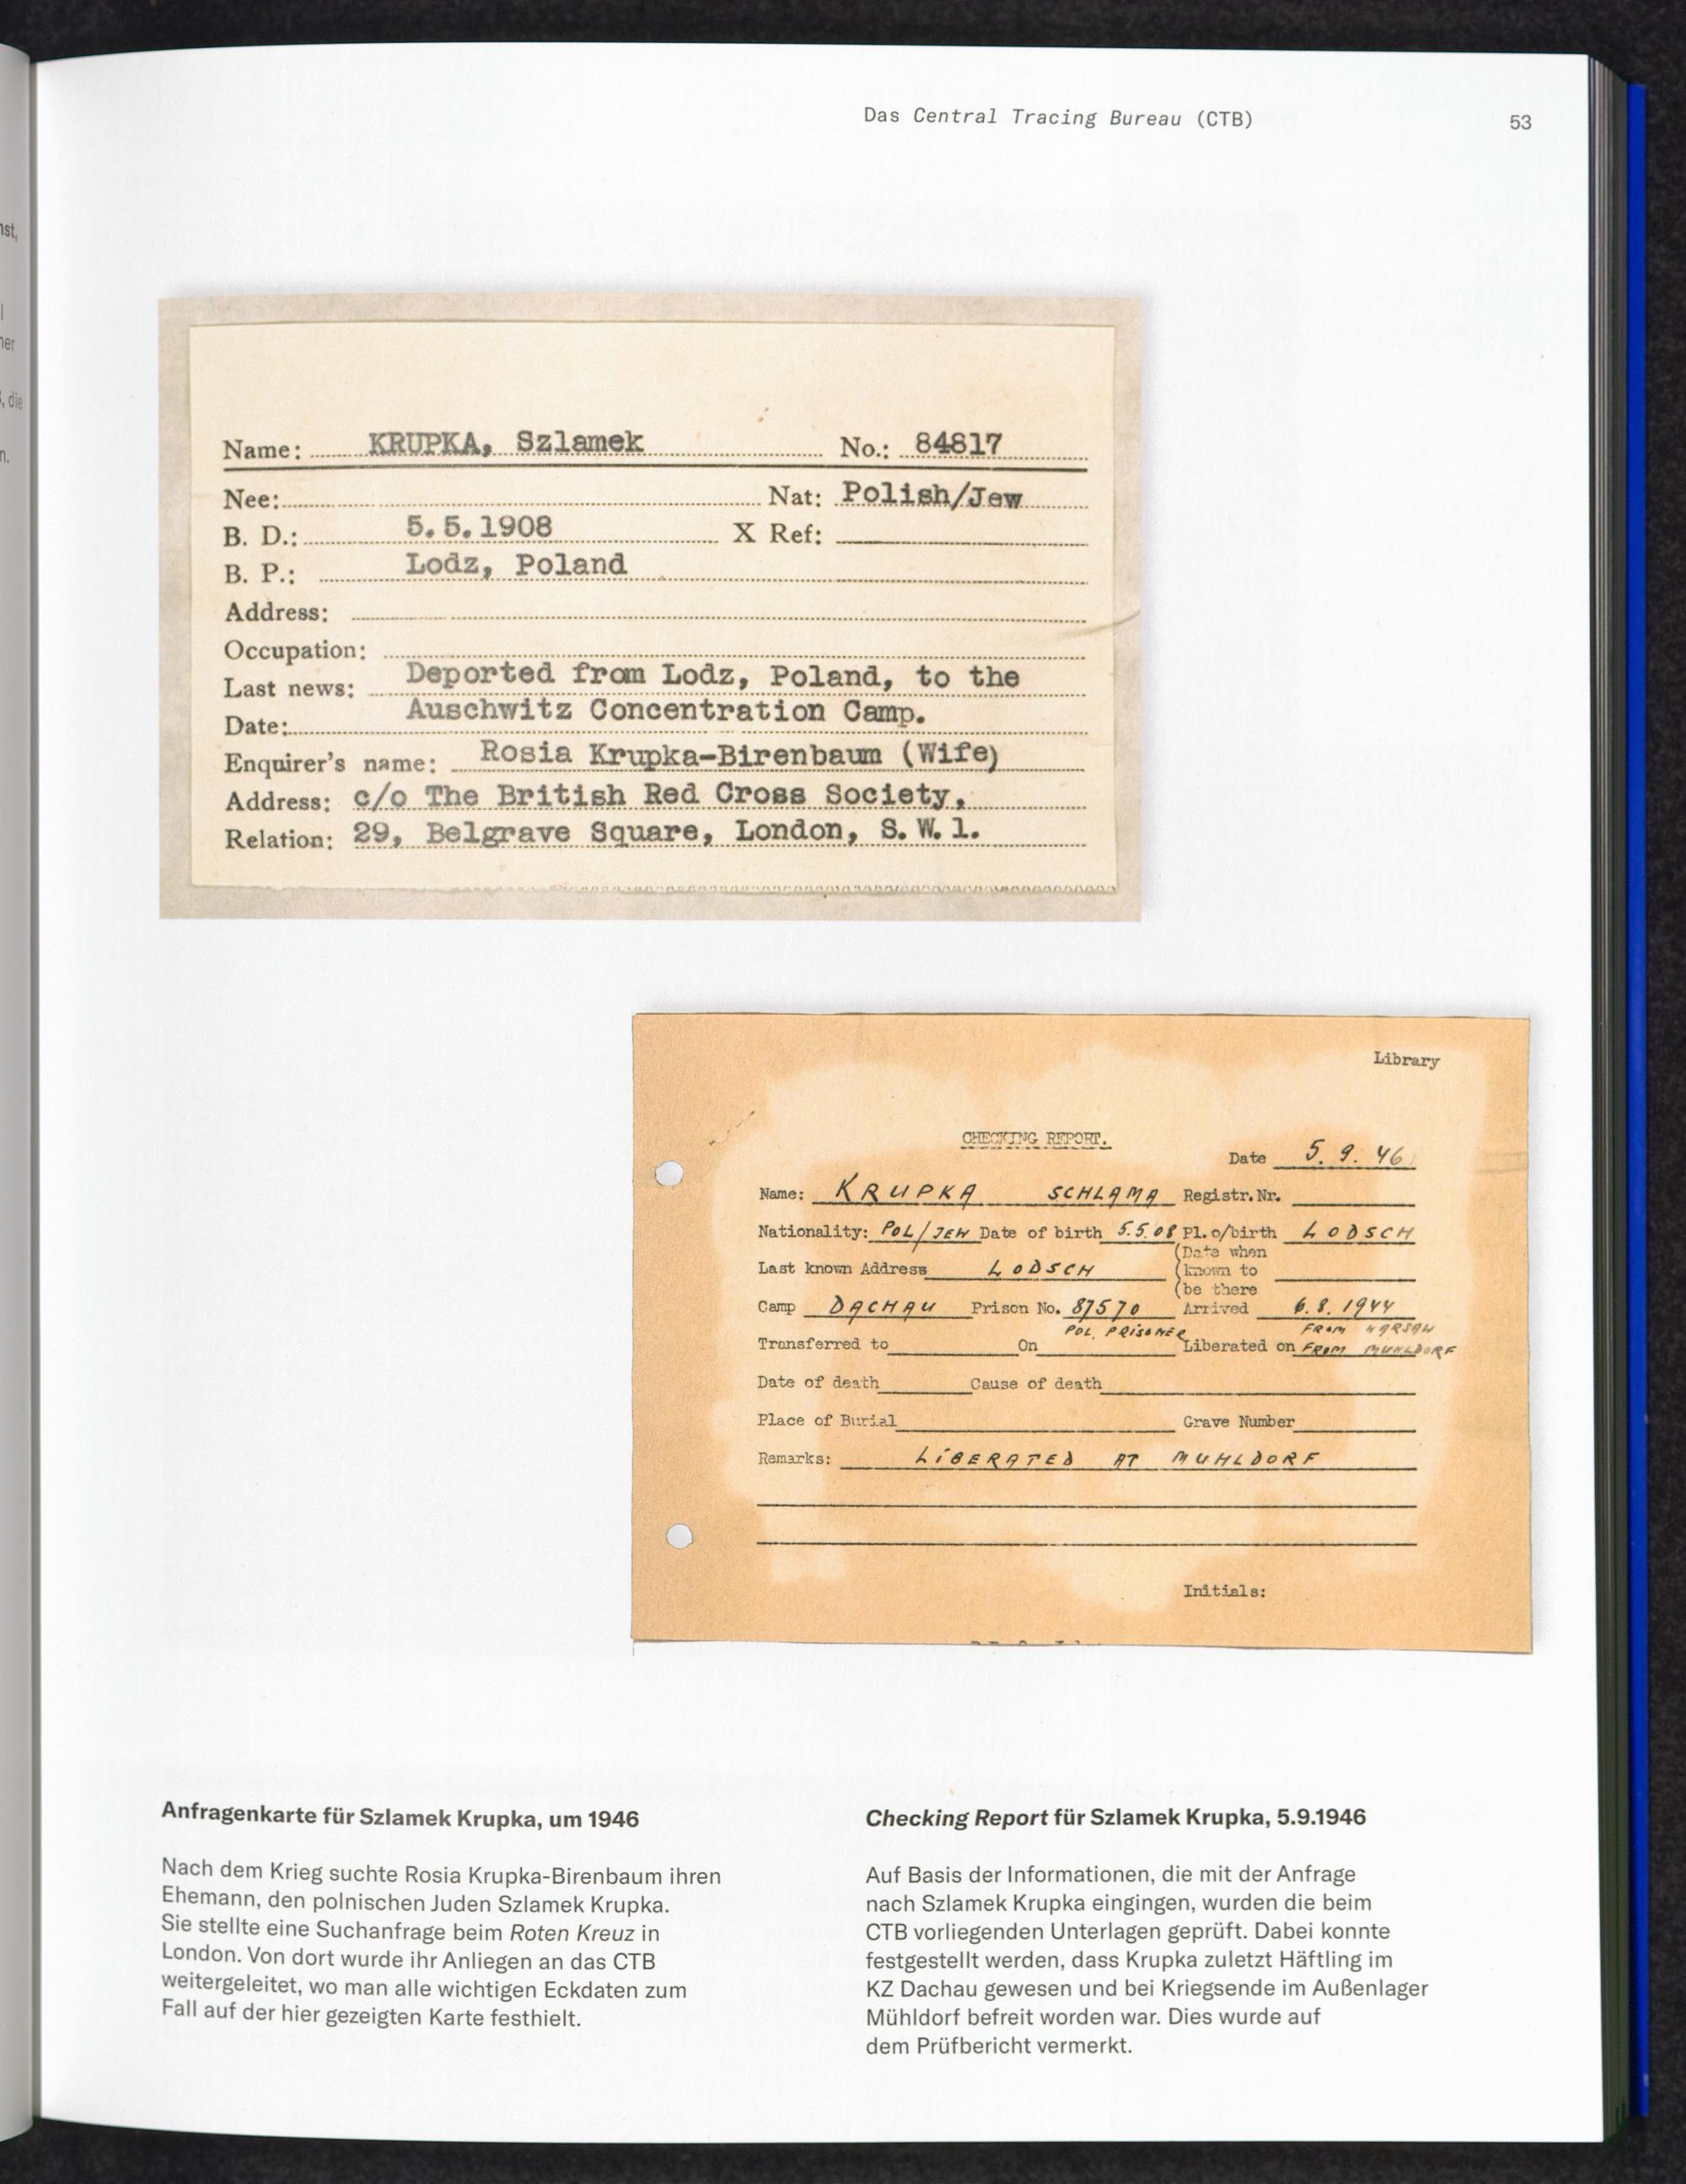 Das Central Tracing Bureau (CTB) 53
nst,
l
ner
, die
n.
Name: KRUPKA, Szlamek No.: 84817
Nee: Nat: Polish/Jew
B. D.: 5.5.1908 X Ref:
B. P.: Lodz, Poland
Address:
Occupation:
Last news: Deported from Lodz, Poland, to the
Date: Auschwitz Concentration Camp.
Enquirer's name: Rosia Krupka-Birenbaum (Wife)
Address: c/o The British Red Cross Society,
Relation: 29, Belgrave Square, London, S.W.1.
Library
CHECKING REPORT.
Date 5. 9. 46
Name: KRUPKA SCHLAMA Registr.Nr.
Nationality: POL/JEW Date of birth 5.5.08 Pl.o/birth LODSCH
(Date when
Last known Address LODSCH (known to
(be there
Camp DACHAU Prison No. 87570 Arrived 6.8.1944
POL. PRISONER FROM WARSAW
Transferred to On Liberated on FROM MUHLDORF
Date of death Cause of death
Place of Burial Grave Number
Remarks: LIBERATED AT MUHLDORF
Initials:
Anfragenkarte für Szlamek Krupka, um 1946
Nach dem Krieg suchte Rosia Krupka-Birenbaum ihren
Ehemann, den polnischen Juden Szlamek Krupka.
Sie stellte eine Suchanfrage beim Roten Kreuz in
London. Von dort wurde ihr Anliegen an das CTB
weitergeleitet, wo man alle wichtigen Eckdaten zum
Fall auf der hier gezeigten Karte festhielt.
Checking Report für Szlamek Krupka, 5.9.1946
Auf Basis der Informationen, die mit der Anfrage
nach Szlamek Krupka eingingen, wurden die beim
CTB vorliegenden Unterlagen geprüft. Dabei konnte
festgestellt werden, dass Krupka zuletzt Häftling im
KZ Dachau gewesen und bei Kriegsende im Außenlager
Mühldorf befreit worden war. Dies wurde auf
dem Prüfbericht vermerkt.